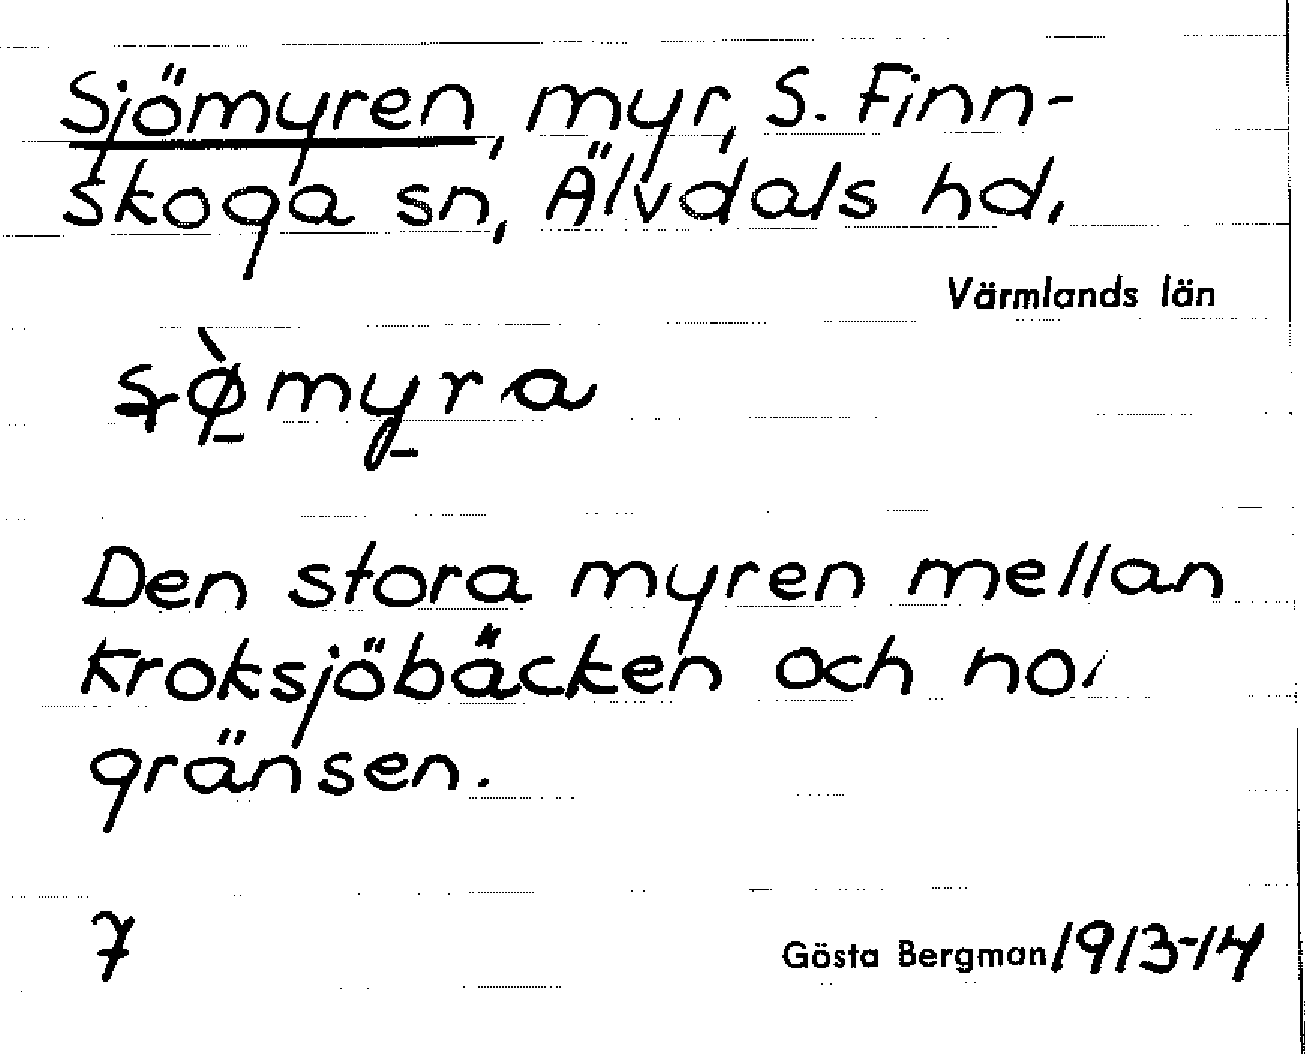 Sjömyren, myr, S. Finn-
skoga sn, Älvdals hd,
Värmlands län
Den stora myren mellan
Kroksjöbäcken och
gränsen.
7
Gösta Bergman 1913-14